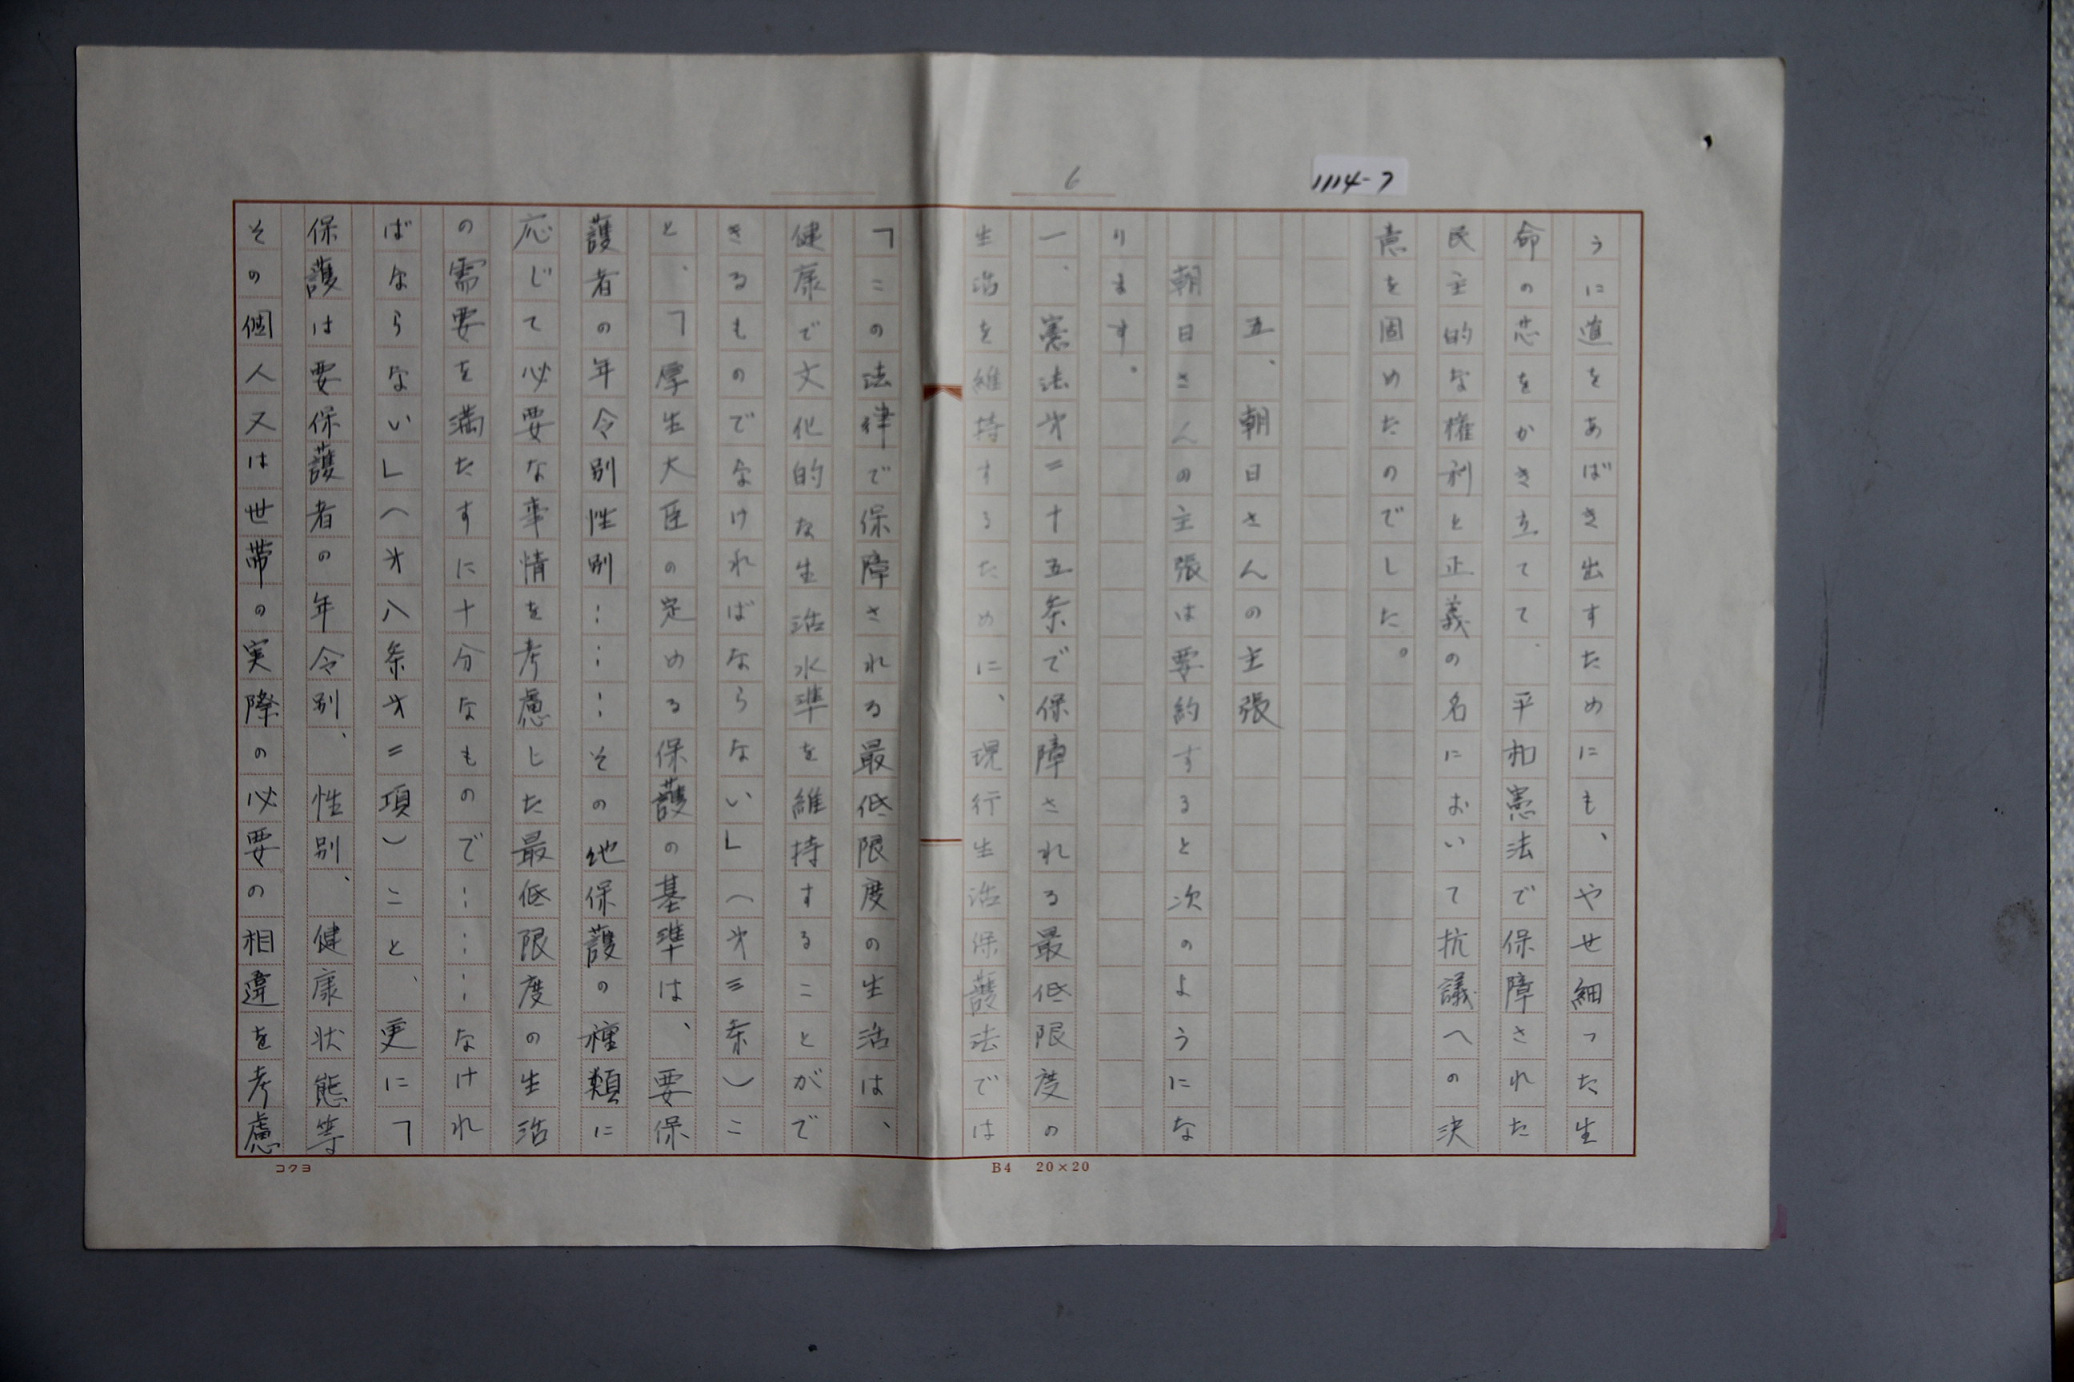 1114-7
6
うに道をあばき出すためにも、やせ細った生
命の芯をかき立てて、平和憲法で保障された
民主的な権利と正義の名において抗議への決
意を固めたのでした。
五、朝日さんの主張
朝日さんの主張は要約すると次のようにな
ります。
一、憲法才二十五条で保障される最低限度の
生活を維持するために、現行生活保護法では
「この法律で保障される最低限度の生活は、
健康で文化的な生活水準を維持することがで
きるものでなければならない」(才三条)こ
と、「厚生大臣の定める保護の基準は、要保
護者の年令別性別………その他保護の種類に
応じて必要な事情を考慮した最低限度の生活
の需要を満たすに十分なもので………なけれ
ばならない」(才八条才二項)こと、更に「
保護は要保護者の年令別、性別、健康状態等
その個人又は世帯の実際の必要の相違を考慮
コクヨ
B4 20×20